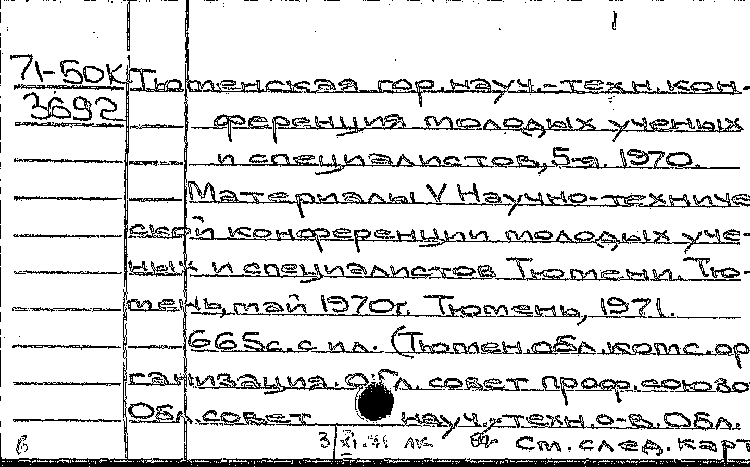 1
71-50К Тюменская гор.науч.-техн.кон-
3692 ференция молодых ученых
и специалистов, 5-я. 1970.
Материалы V Научно-техниче
ской конференции молодых уче-
ных и специалистов Тюмени. Тю-
мень, май 1970г. Тюмень, 1971.
665с. с ил. (Тюмен.обл.комс.ор
ганизация. Обл. совет проф.союзо
Обл.совет науч.-техн.о-в. Обл.
В 3 см.след.карт